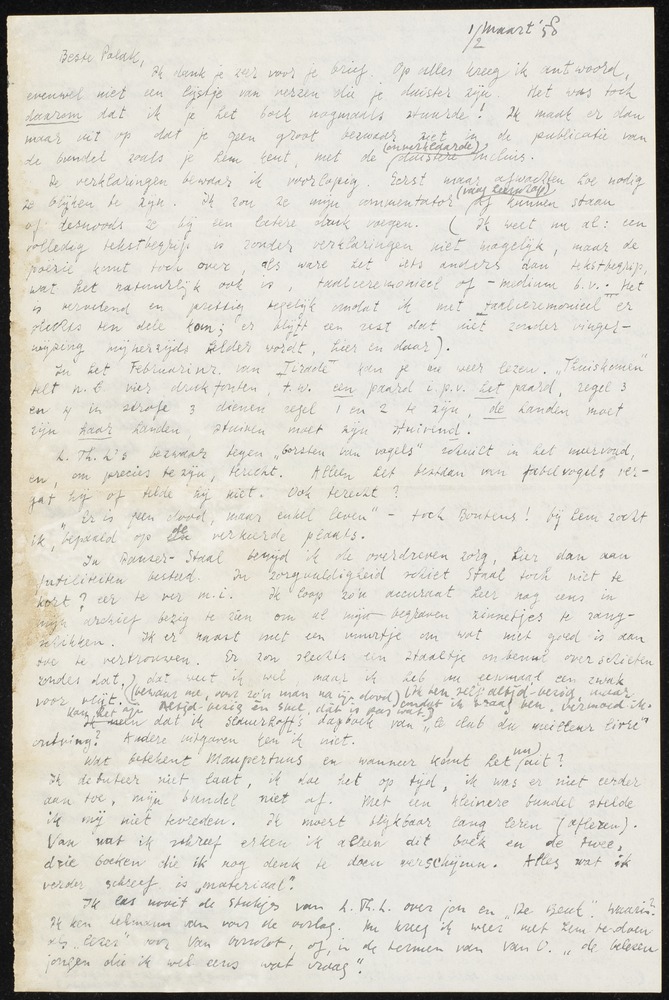 1/2 maart '58
Beste Polak,
Ik dank je zeer voor je brief. Op alles kreeg ik antwoord,
evenwel niet een lijstje van verzen die je duister zijn. Het was toch
daarom dat ik je het boek nogmaals stuurde! Ik maak er dan
maar uit op dat je geen groot bezwaar ziet in de publicatie van
de bundel zoals je hem kent, met de (onverklaarde) duistere incluis.
De verklaringen bewaar ik voorlopig. Eerst maar afwachten hoe nodig
ze blijken te zijn. Ik zou ze mijn commentator af kunnen staan
of desnoods ze bij een latere druk voegen. (Ik weet nu al: een
volledig tekstbegrip is zonder verklaringen niet mogelijk, maar de
poëzie komt toch over, als ware het iets anders dan tekstbegrip,
wat het natuurlijk ook is, taalceremonieel of -medium b.v.. Het
is vervelend en prettig tegelijk omdat ik met taalceremonieel er
slechts ten dele kom; er blijft een rest dat niet zonder vinger-
wijzing mijnerzijds helder wordt, hier en daar).
In het Februarinr. van Tirade kan je me weer lezen. "Thuiskomen"
telt n.b. vier drukfouten, t.w. een paard i.p.v. het paard, regel 3
en 4 in strofe 3 dienen regel 1 en 2 te zijn, de handen moet
zijn haar handen, stuiven moet zijn stuivend.
L. Th. L's bezwaar tegen "borsten van vogels" schuilt in het meervoud,
en, om precies te zijn, terecht. Alleen het bestaan van fabelvogels ver-
gat hij of telde hij niet. Ook terecht?
"Er is geen dood, maar enkel leven" - toch Boutens! Bij hem zocht
ik, bepaald op de verkeerde plaats.
In Panser-Staal benijd ik de overdreven zorg, hier dan aan
futiliteiten besteed. In zorgvuldigheid schiet Staal toch niet te
kort? eer te ver m.i. Ik loop zo'n accuraat heer nog eens in
mijn archief bezig te zien om al mijn begraven zinnetjes te rang-
schikken. Ik er naast met een vuurtje om wat niet goed is aan
toe te vertrouwen. Er zou slechts een staaltje onbenul overschieten
zondes dat, dat weet ik wel, maar ik heb nu eenmaal een zwak
voor vlijt. (bewaar me, voor zo'n man na mijn dood)
dat ik Slauerhoff's dagboek van "le club du meilleur livre"
ontving? Andere uitgaven ken ik niet.
Wat betekent Maupertuus en wanneer komt het nu uit?
Ik debuteer niet laat, ik doe het op tijd, ik was er niet eerder
aan toe, mijn bundel niet af. Met een kleinere bundel stelde
ik mij niet tevreden. Ik moest blijkbaar lang leren (afleren).
Van wat ik schreef erken ik alleen dit boek en de twee,
drie boeken die ik nog denk te doen verschijnen. Alles wat ik
verder schreef is "materiaal".
Ik las nooit de stukjes van L. Th. L. over jou en "De Geuk". Waarin?
Ik ken Lehmann van voor de oorlog. Nu kreeg ik weer met hem te doen
als "lezer" voor Van Oorschot, of, in de termen van van O. "de belezen
jongen die ik wel eens wat vraag".